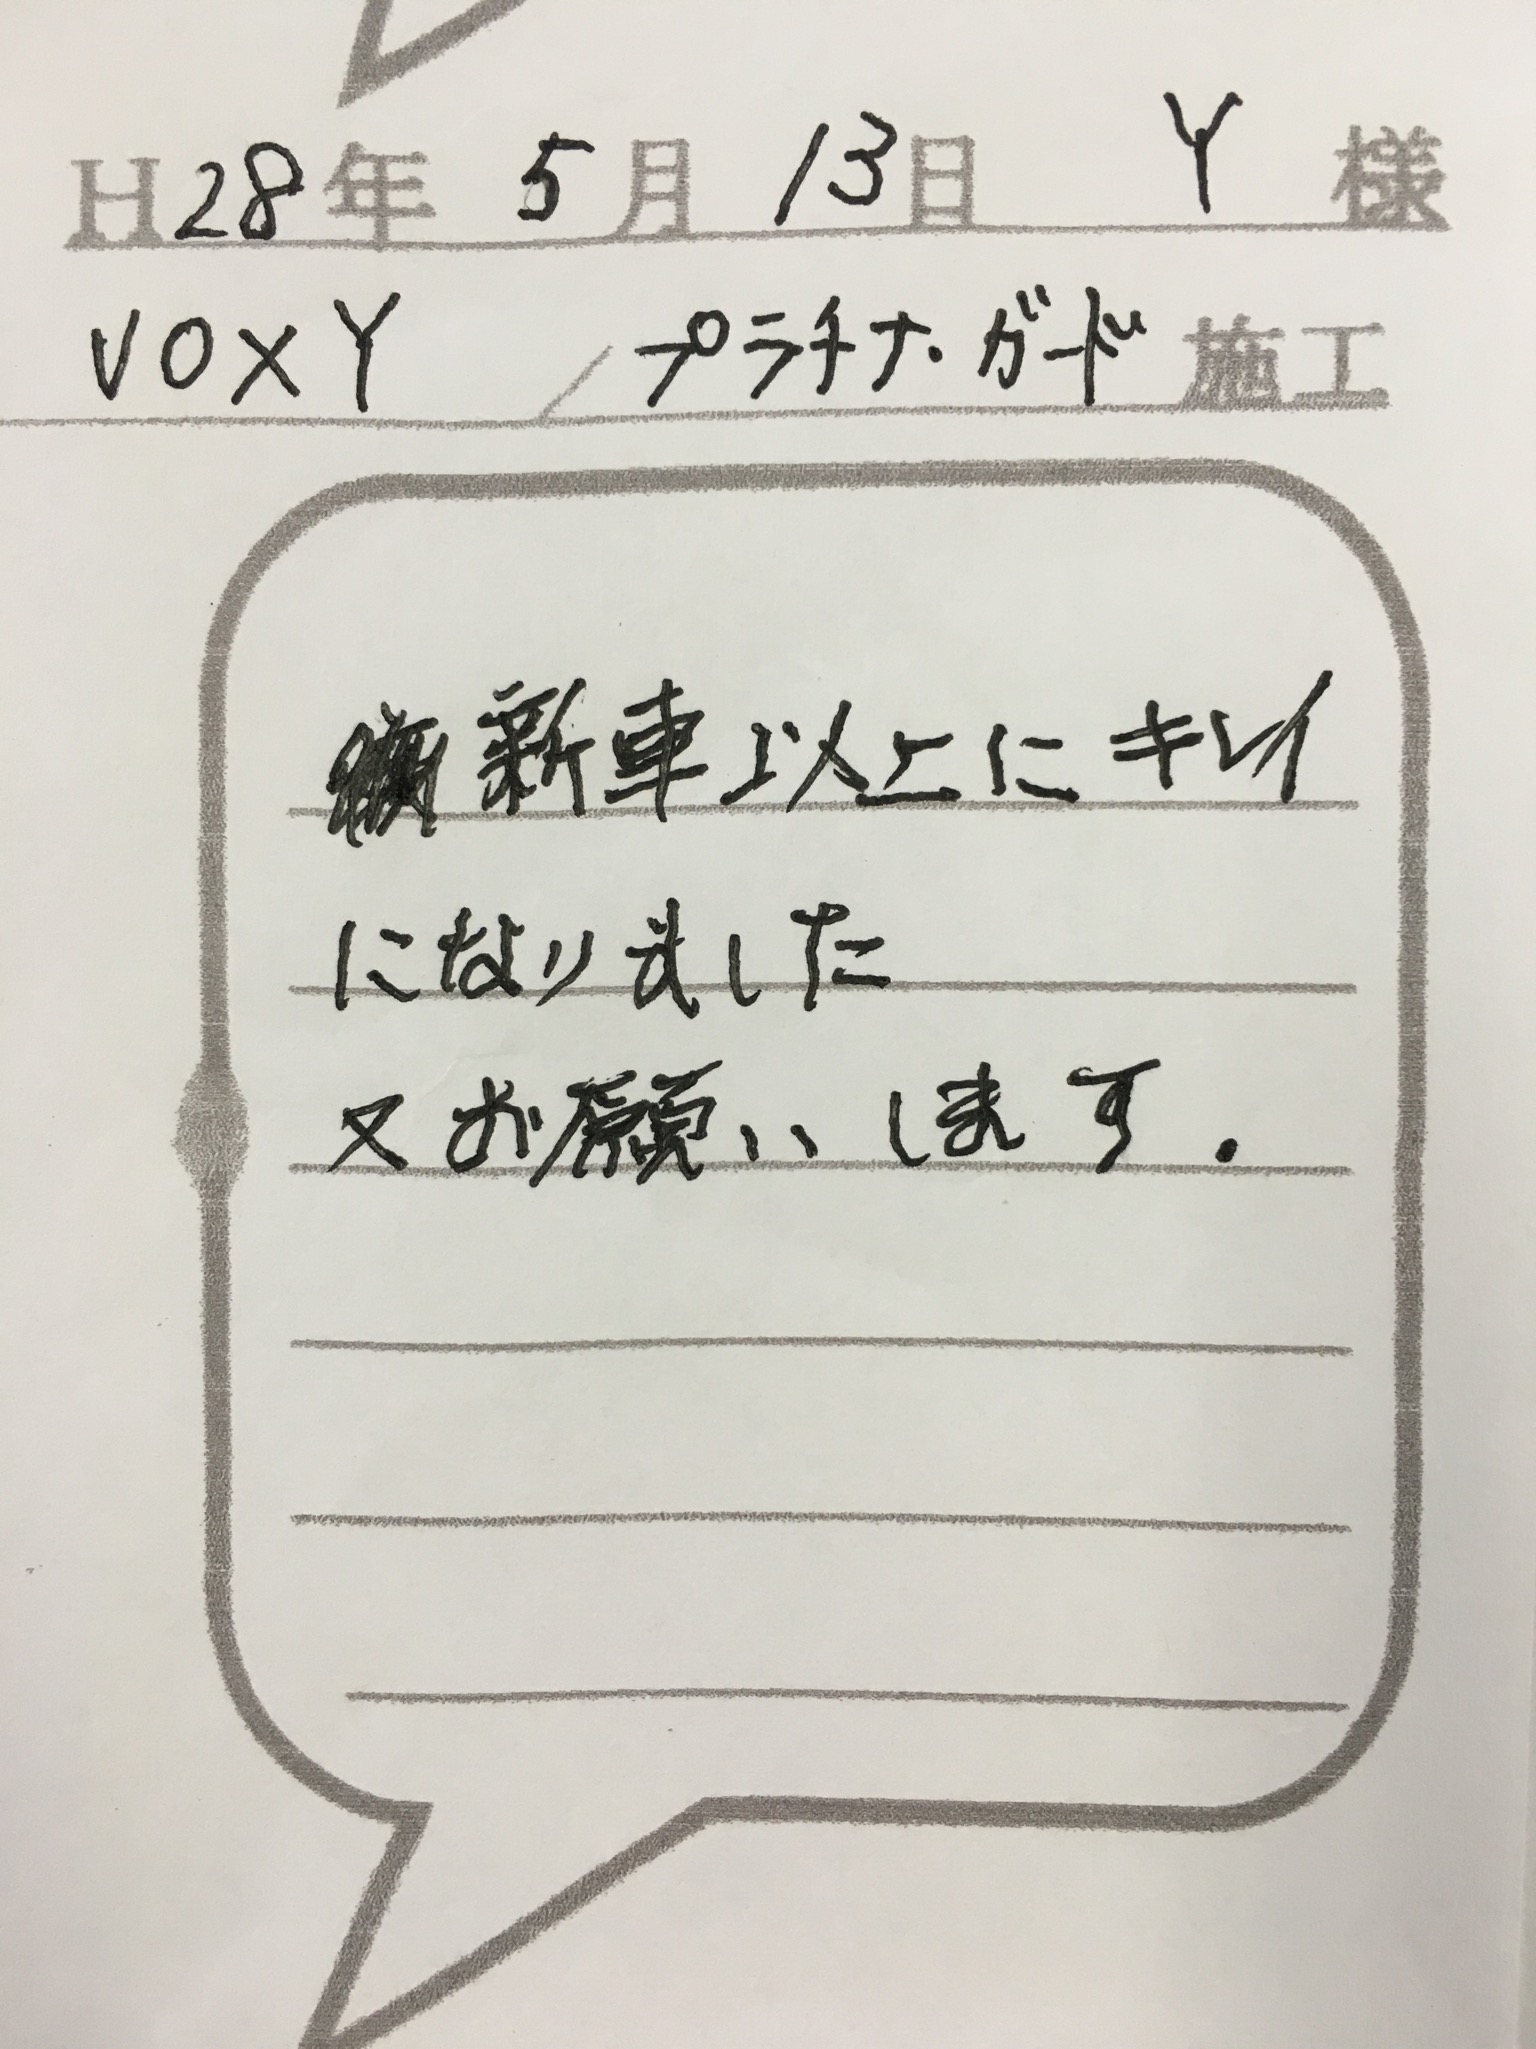 H28年 5月 13日 Y 様
VOXY / プラチナ・ガード 施工
新車以上にキレイ
になりました
又お願いします.